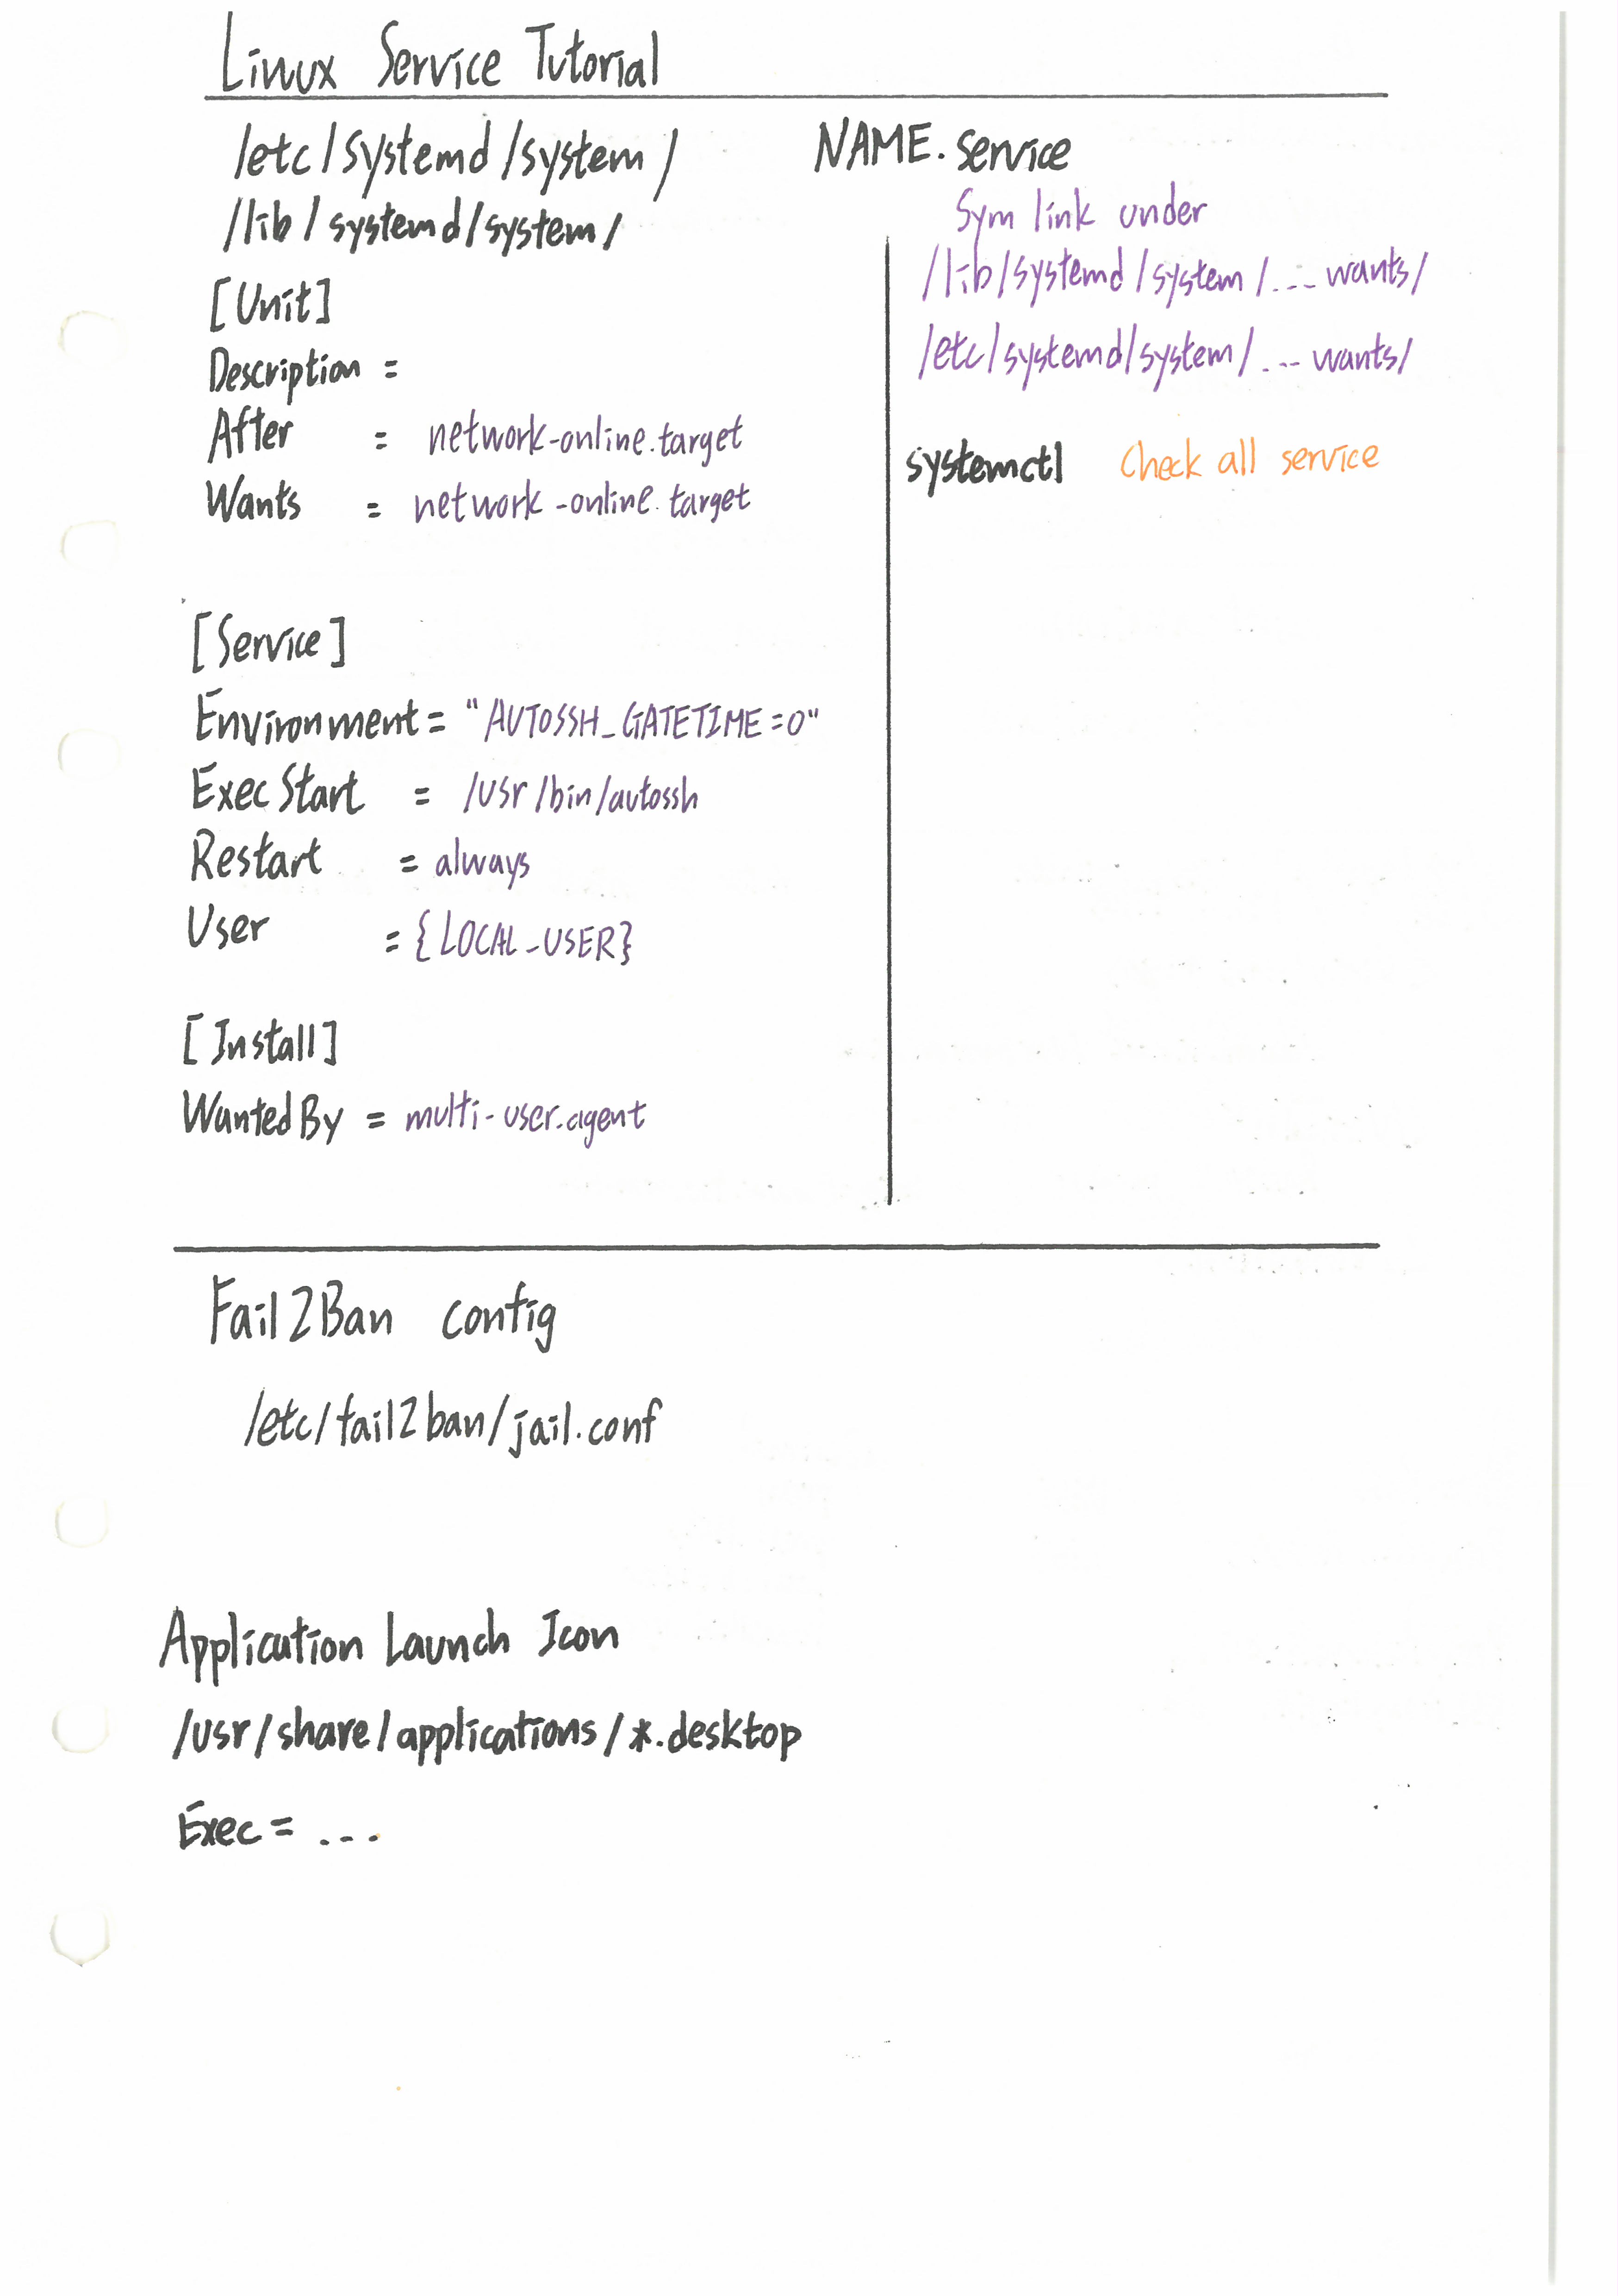 Linux Service Tutorial
/etc/systemd/system/ NAME.service
/lib/systemd/system/
[Unit]
Description =
After = network-online.target
Wants = network-online.target
[Service]
Environment = "AUTOSSH_GATETIME=0"
ExecStart = /usr/bin/autossh
Restart = always
User = {LOCAL_USER}
[Install]
WantedBy = multi-user.agent
Sym link under
/lib/systemd/system/... wants/
/etc/systemd/system/... wants/
systemctl Check all service
Fail2Ban config
/etc/fail2ban/jail.conf
Application Launch Icon
/usr/share/applications/*.desktop
Exec = ...